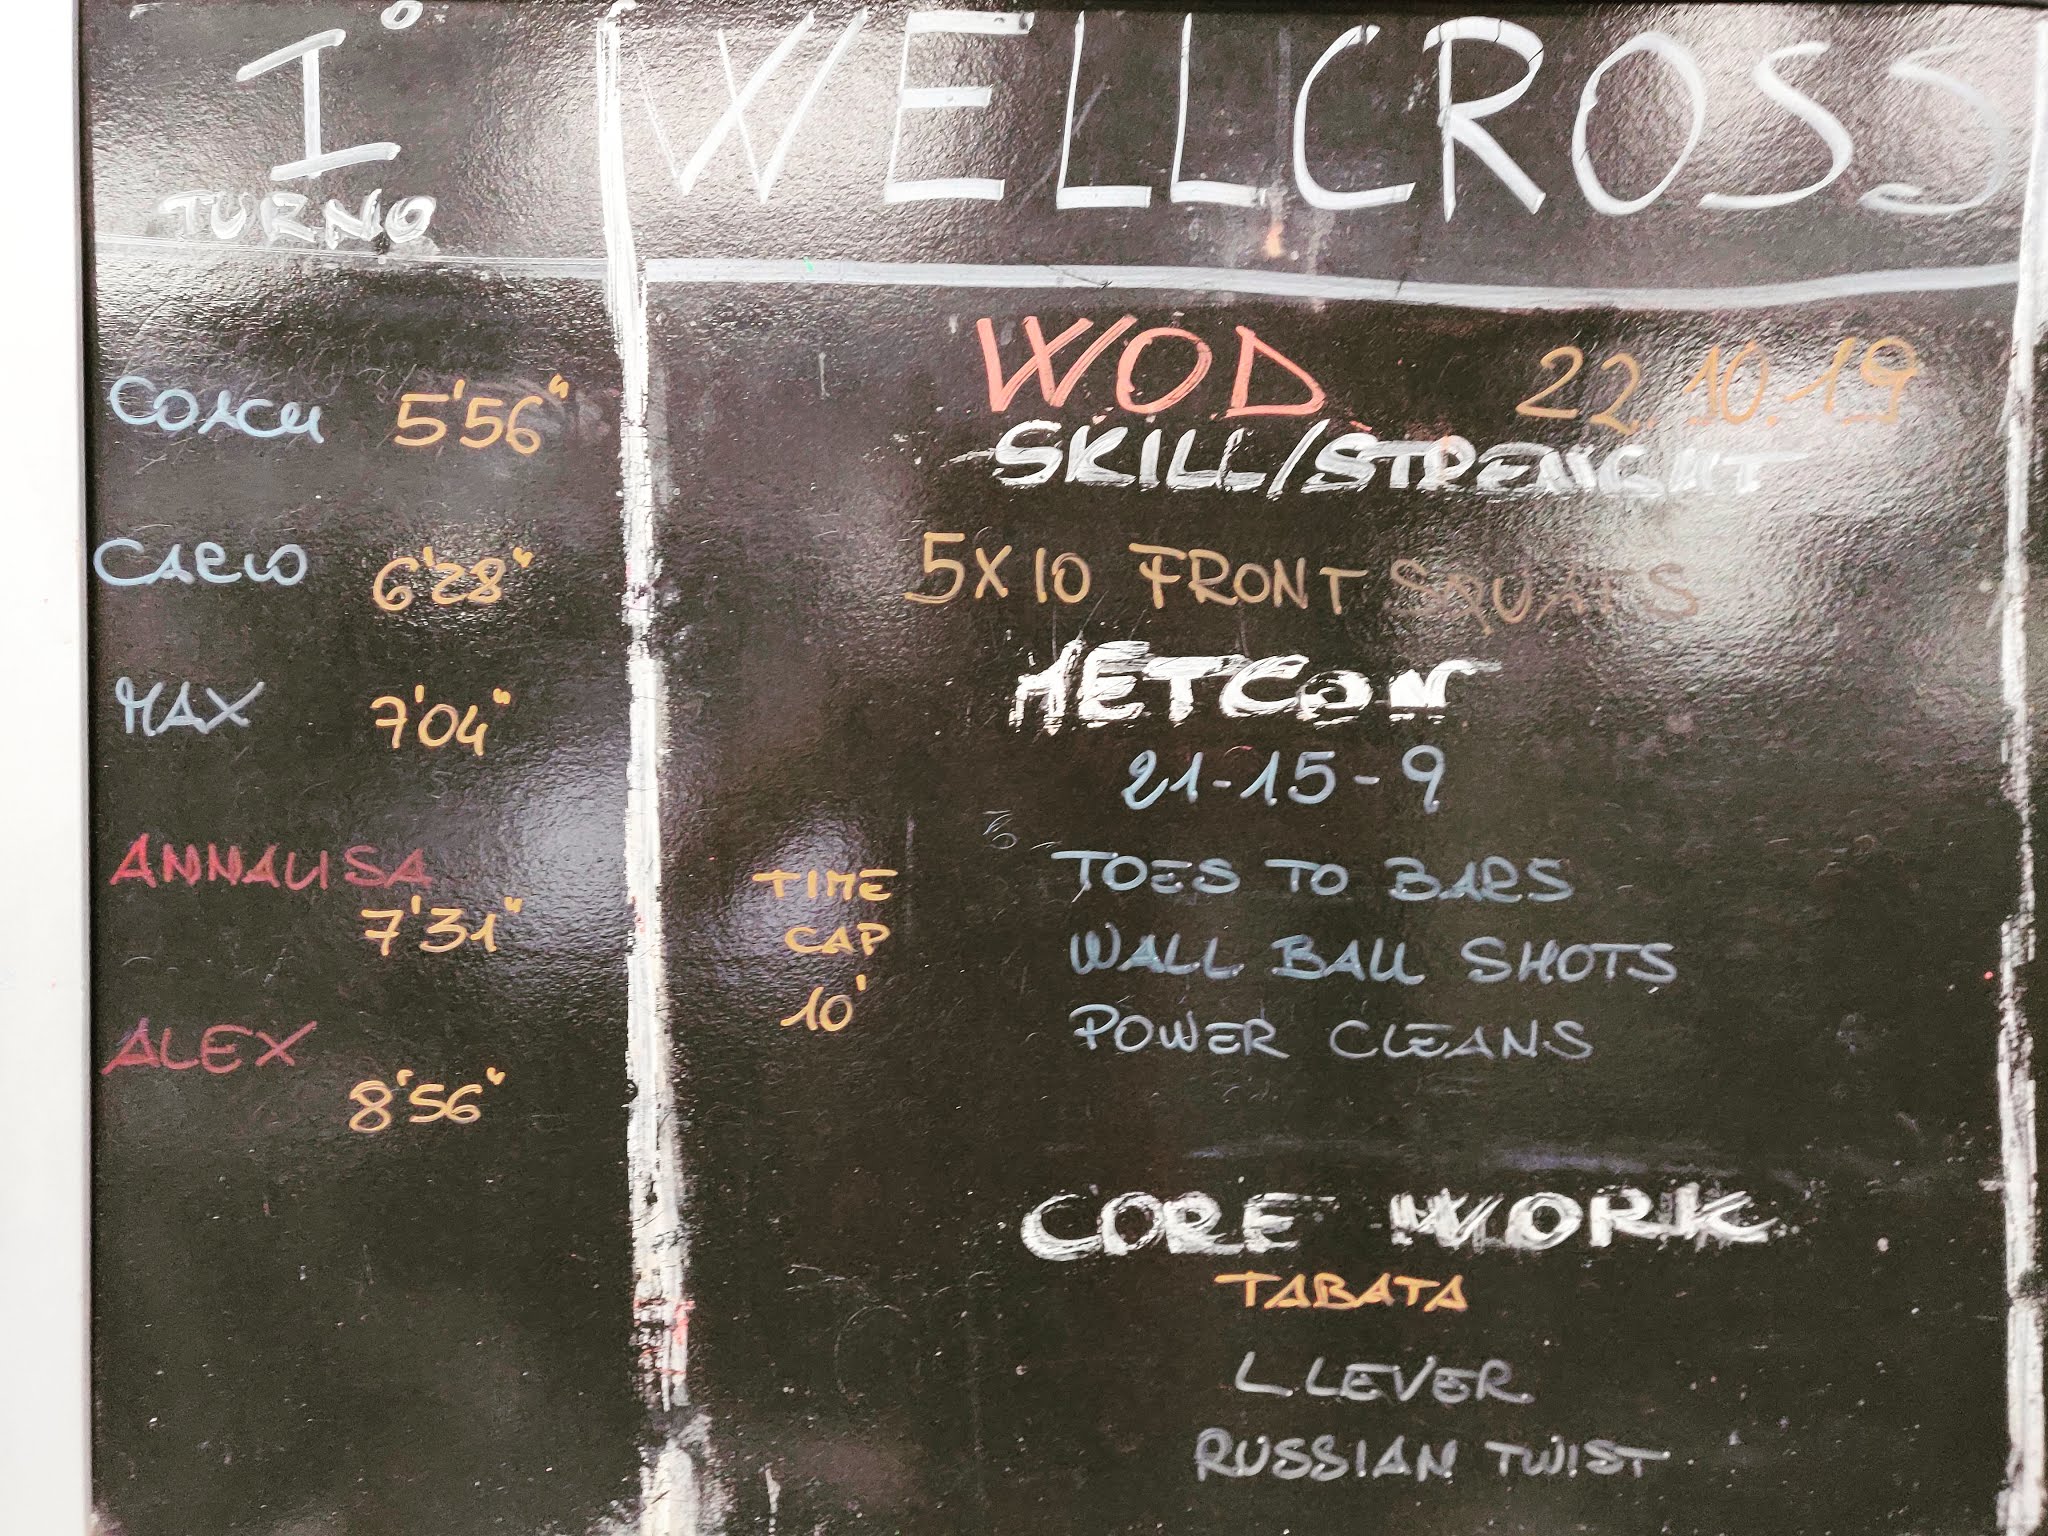 I°
TURNO
COACH 5'56"
CARLO 6'28"
MAX 7'04"
ANNALISA
7'31"
ALEX
8'56"
WELLCROSS
WOD 22.10.19
SKILL/STRENGHT
5X10 FRONT SQUATS
METCON
21-15-9
TIME
CAP
10'
TOES TO BARS
WALL BALL SHOTS
POWER CLEANS
CORE WORK
TABATA
L LEVER
RUSSIAN TWIST